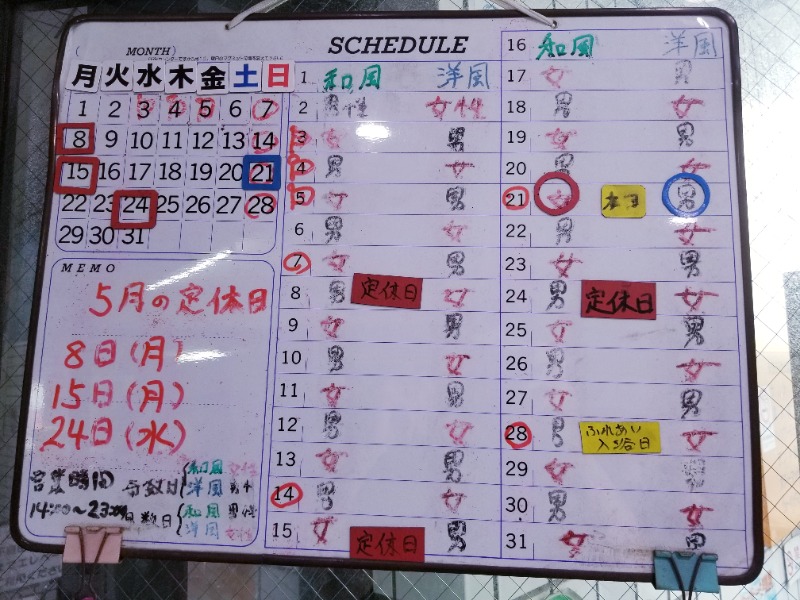 MONTH
SCHEDULE
月 火 水 木 金 土 日
1 2 3 4 5 6 7
8 9 10 11 12 13 14
15 16 17 18 19 20 21
22 23 24 25 26 27 28
29 30 31
MEMO
5月の定休日
8日(月)
15日(月)
24日(水)
営業時間
14:00~23:00
奇数日 和風 女性
洋風 男性
偶数日 和風 男性
洋風 女性
1 和風 洋風
2 男性 女性
3 女 男
4 男 女
5 女 男
6 男 女
7 女 男
8 男 定休日 女
9 女 男
10 男 女
11 女 男
12 男 女
13 女 男
14 男 女
15 女 定休日 男
16 和風 洋風
17 女 男
18 男 女
19 女 男
20 男 女
21 女 本日 男
22 男 女
23 女 男
24 男 定休日 女
25 女 男
26 男 女
27 女 男
28 男 ふれあい入浴日 女
29 女 男
30 男 女
31 女 男